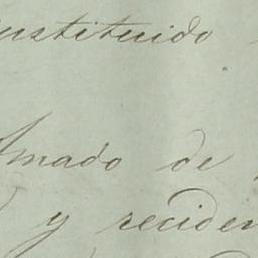 nstituido
Amado de
y reciden